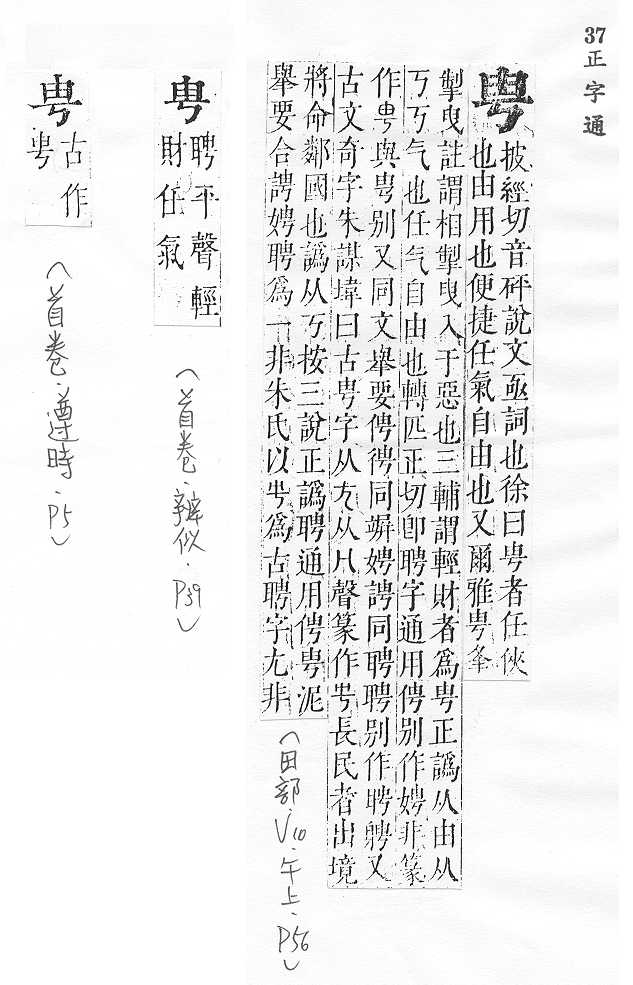 37正字通
甹
披經切音砰說文亟詞也徐曰甹者任俠
也由用也便捷任氣自由也又爾雅甹夆
掣曳註謂相掣曳入于惡也三輔謂輕財者爲甹正譌从由从
丂丂气也任气自由也轉匹正切卽聘字通用俜別作娉非篆
作甹與甹別又同文舉要俜德同竮娉謣同聘聘別作聘騁又
古文奇字朱謀㙔曰古甹字从 从 聲篆作甹長民者出境
將命鄰國也譌从丂按三說正譌聘通用俜甹泥
舉要合謣娉聘爲一非朱氏以甹爲古聘字尢非
(田部.V10.午上.P56)
甹
聘平聲輕
財任氣
(首卷.辨似.P39)
甹
古作
甹
(首卷.遵時.P5)